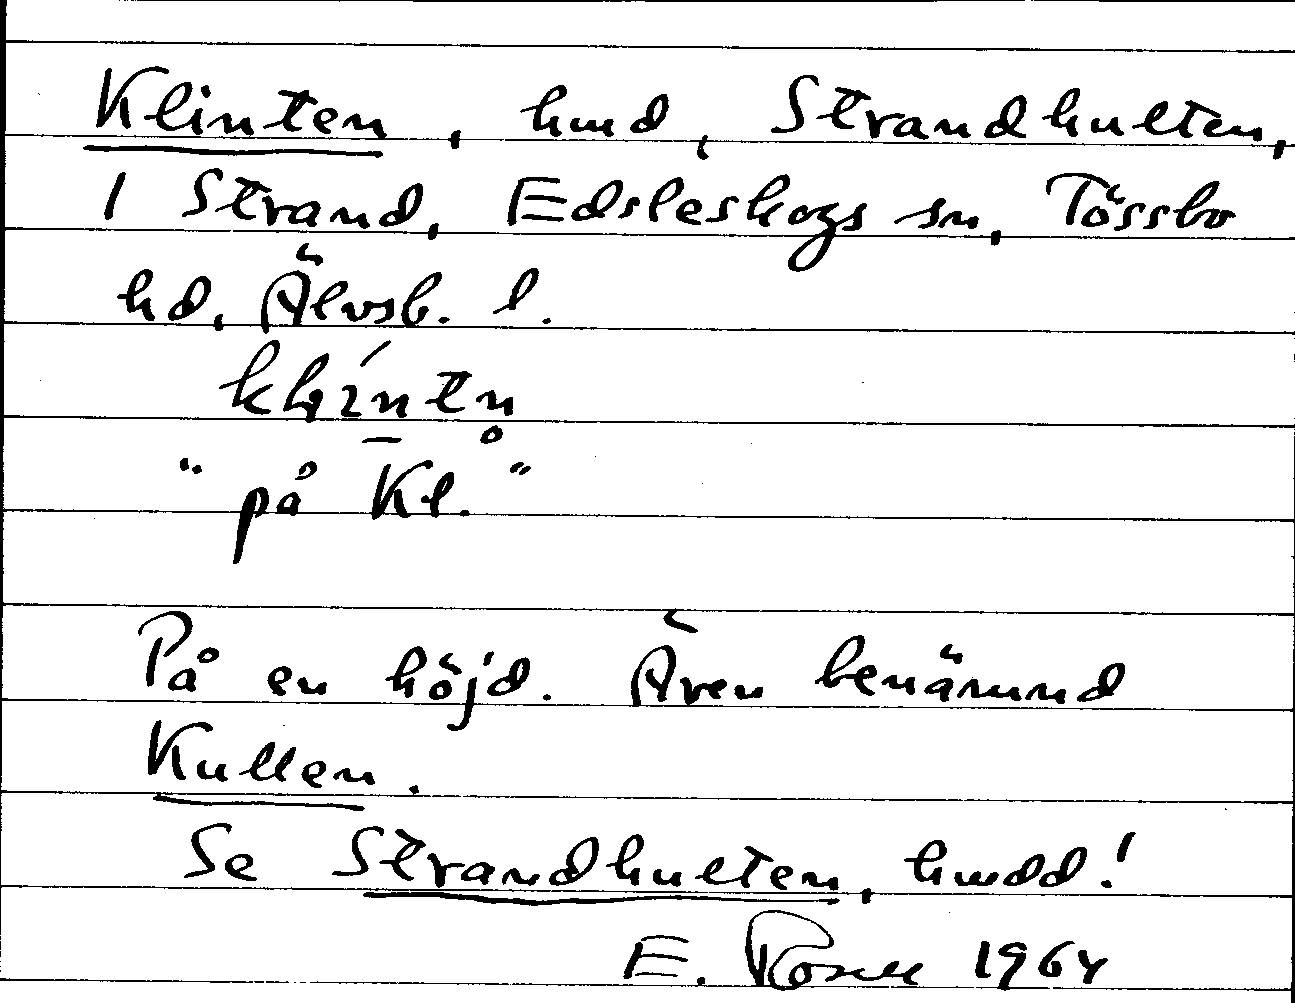 Klinten, hmd, Strandhulten,
1 Strand, Edsleskogs sn, Tössbo
hd, Älvsb. l.
"på Kl."
På en höjd. Även benämnd
Kullen.
Se Strandhulten, hmdd!
E. Rosell 1964